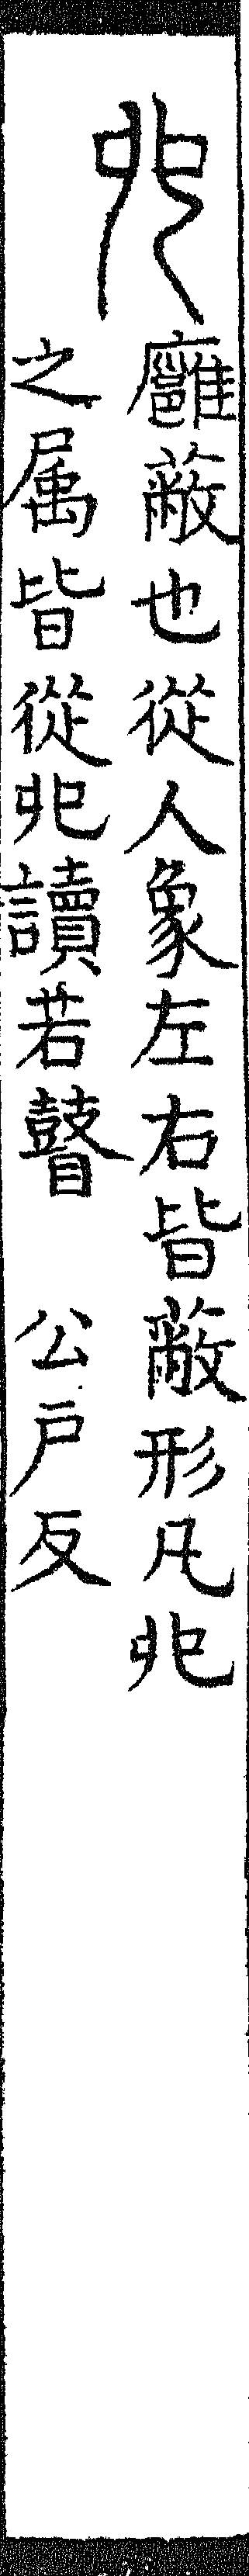 𠑹
廱蔽也從人象左右皆蔽形凡𠑹
之属皆從𠑹讀若瞽 公戶反